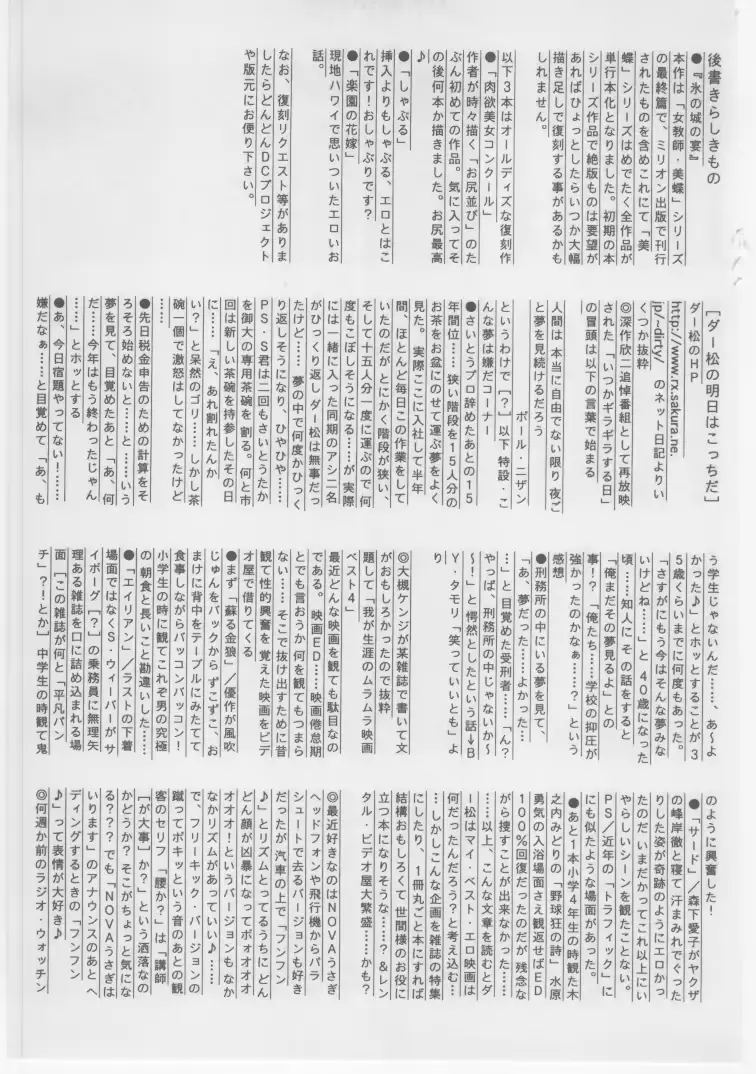 後書きらしきもの
●『氷の城の宴』
本作は「女教師・美蝶」シリーズ
の最終篇で、ミリオン出版で刊行
されたものを含めこれにて「美
蝶」シリーズはめでたく全作品が
単行本化となりました。初期の本
シリーズ作品で絶版ものは要望が
あればひょっとしたらいつか大幅
描き足しで復刻する事があるかも
しれません。
以下3本はオールディズな復刻作
●「肉欲美女コンクール」
作者が時々描く「お尻並び」のた
ぶん初めての作品。気に入ってそ
の後何本か描きました。お尻最高
♪
●「しゃぶる」
挿入よりもしゃぶる、エロとはこ
れです！おしゃぶりです？
●「楽園の花嫁」
現地ハワイで思いついたエロいお
話。
なお、復刻リクエスト等がありま
したらどんどんDCプロジェクト
や版元にお便り下さい。
[ダー松の明日はこっちだ]
ダー松のHP
http://www.rx.sakura.ne.
jp/~dirty/ のネット日記よりい
くつか抜粋
◎深作欣二追悼番組として再放映
された「いつかギラギラする日」
の冒頭は以下の言葉で始まる
人間は 本当に自由でない限り 夜ご
と夢を見続けるだろう
ポール・ニザン
というわけで[？]以下 特設・こ
んな夢は嫌だコーナー
●さいとうプロ辞めたあとの15
年間位……狭い階段を15人分の
お茶をお盆にのせて運ぶ夢をよく
見た。実際ここに入社して半年
間、ほとんど毎日この作業をして
いたのだが、とにかく階段が狭い、
そして十五人分一度に運ぶので何
度もこぼしそうになる……が 実際
には一緒に入った同期のアシ二名
がひっくり返しダー松は無事だっ
たけど……夢の中で何度かひっく
り返しそうになり、ひやひや……
PS・S君は二回もさいとうたか
を御大の専用茶碗を割る。何と市
回は新しい茶碗を持参したその日
に……「え、あれ割れたんか
い？」と呆然のゴリ……しかし茶
碗一個で激怒はしてなかったけど
……
●先日税金申告のための計算をそ
ろそろ始めないと……と……いう
夢を見て、目覚めたあと「あ、何
だ……今年はもう終わったじゃん
……」とホッとする
●あ、今日宿題やってない！……
嫌だなぁ……と目覚めて「あ、も
う学生じゃないんだ……、あ～よ
かった♪」とホッとすることが3
5歳くらいまでに何度もあった。
「さすがにもう今はそんな夢みな
いけどね……」と40歳になった
頃……知人に その話をすると
「俺まだその夢見るよ」との
事！？「俺たち……学校の抑圧が
強かったのかなぁ……？」という
感想
●刑務所の中にいる夢を見て、
「あ、夢だった……よかった…
…」と目覚めた受刑者……「ん？
やっぱ、刑務所の中じゃないか～
～！」と愕然としたという話→B
Y・タモリ「笑っていいとも」よ
り
◎大槻ケンジが某雑誌で書いて文
がおもしろかったので抜粋
題して「我が生涯のムラムラ映画
ベスト4」
最近どんな映画を観ても駄目なの
である。映画ED……映画倦怠期
とでも言おうか 何を観てもつまら
ない……そこで抜け出すために昔
観て性的興奮を覚えた映画をビデ
オ屋で借りてくる
●まず「蘇る金狼」／優作が風吹
じゅんをバックから ずこずこ、お
まけに背中をテーブルにみたてて
食事しながらバッコンバッコン！
小学生の時に観てこれぞ男の究極
の 朝食と長いこと勘違いした……
●「エイリアン」／ラストの下着
場面ではなくS・ウィーバーがサ
イボーグ[？]の乗務員に無理矢
理ある雑誌を口に詰め込まれる場
面 [この雑誌が何と「平凡パン
チ」？！とか] 中学生の時観て鬼
のように興奮した！
●「サード」／森下愛子がヤクザ
の峰岸徹と寝て 汗まみれでぐった
りした姿が奇跡のようにエロかっ
たのだ いまだかってこれ以上にい
やらしいシーンを観たことない。
PS／近年の「トラフィック」に
にも似たような場面があった。
●あと1本小学4年生の時観た木
之内みどりの「野球狂の詩」水原
勇気の入浴場面さえ観返せばED
100%回復だったのだが 残念な
がら捜すことが出来なかった……
……以上、こんな文章を読むとダ
ー松はマイ・ベスト・エロ映画は
何だったんだろう？と考え込む…
…しかしこんな企画を雑誌の特集
にしたり、1冊丸ごと本にすれば
結構おもしろくて 世間様のお役に
立つ本になりそうな……？＆レン
タル・ビデオ屋大繁盛……かも？
◎最近好きなのはNOVAうさぎ
ヘッドフォンや飛行機からパラ
シュートで去るバージョンも好き
だったが 汽車の上で「フンフン
♪」とリズムとってるうちに どん
どん顔が凶暴になってボォオオオ
オオオ！というバージョンもなか
なかリズムがあっていい♪……
で、フリーキック・バージョンの
蹴ってボキッという音のあとの観
客のセリフ「腰か？」は「講師
[が大事]か？」という洒落なの
かどうか？そこがちょっと気にな
る？？？でも「NOVAうさぎは
いります」のアナウンスのあと へ
ディングするときの「フンフン
♪」って表情が大好き♪
◎何週か前のラジオ・ウォッチン